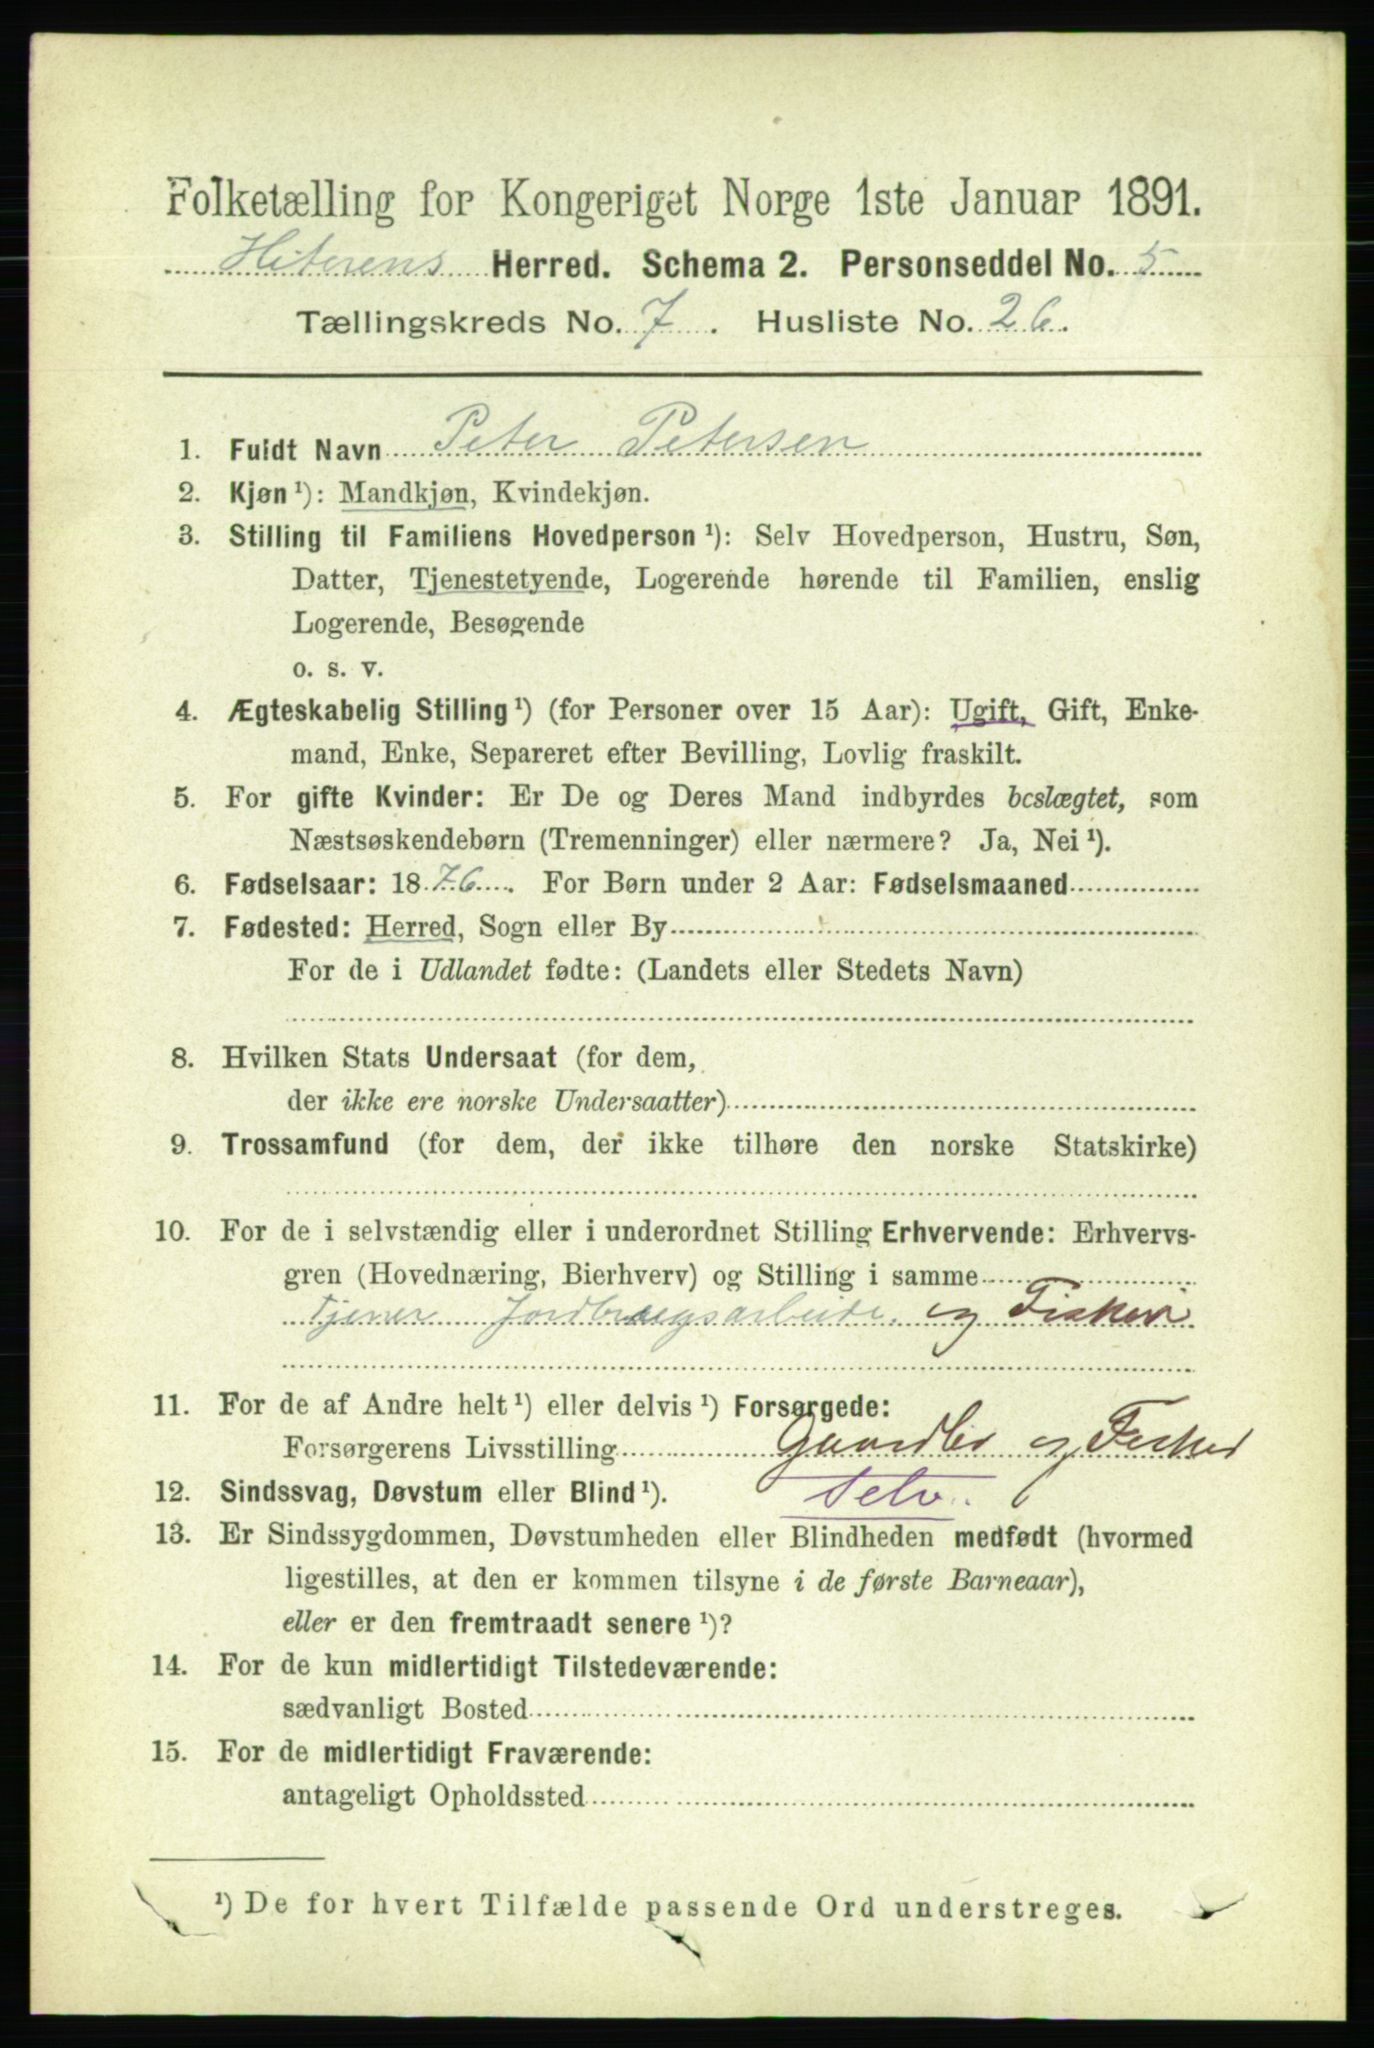 Folketælling for Kongeriget Norge 1ste Januar 1891.
Hiterens Herred. Schema 2. Personseddel No. 5
Tællingskreds No. 7. Husliste No. 26.
1. Fuldt Navn Peter Petersen
2. Kjøn ¹): Mandkjøn, Kvindekjøn.
3. Stilling til Familiens Hovedperson ¹): Selv Hovedperson, Hustru, Søn,
Datter, Tjenestetyende, Logerende hørende til Familien, enslig
Logerende, Besøgende
o. s. v.
4. Ægteskabelig Stilling ¹) (for Personer over 15 Aar): Ugift, Gift, Enke-
mand, Enke, Separeret efter Bevilling, Lovlig fraskilt.
5. For gifte Kvinder: Er De og Deres Mand indbyrdes beslægtet, som
Næstsøskendebørn (Tremenninger) eller nærmere? Ja, Nei ¹).
6. Fødselsaar: 1876. For Børn under 2 Aar: Fødselsmaaned
7. Fødested: Herred, Sogn eller By
For de i Udlandet fødte: (Landets eller Stedets Navn)
8. Hvilken Stats Undersaat (for dem,
der ikke ere norske Undersaatter)
9. Trossamfund (for dem, der ikke tilhøre den norske Statskirke)
10. For de i selvstændig eller i underordnet Stilling Erhvervende: Erhvervs-
gren (Hovednæring, Bierhverv) og Stilling i samme
Tjener Jordbrugsarbeide og Fiskeri
11. For de af Andre helt ¹) eller delvis ¹) Forsørgede:
Forsørgerens Livsstilling Gaardbr og Fisker
12. Sindssvag, Døvstum eller Blind ¹). Selv.
13. Er Sindssygdommen, Døvstumheden eller Blindheden medfødt (hvormed
ligestilles, at den er kommen tilsyne i de første Barneaar),
eller er den fremtraadt senere ¹)?
14. For de kun midlertidigt Tilstedeværende:
sædvanligt Bosted
15. For de midlertidigt Fraværende:
antageligt Opholdssted
¹) De for hvert Tilfælde passende Ord understreges.